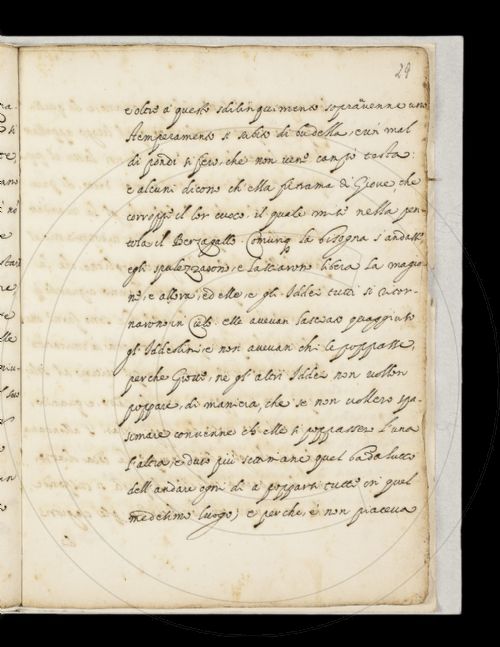 29
e oltre a questo sdilinquimento sopravvenne uno
stemperamento sì subito di budella, e un mal
di pondi sì fero, che non ven' campò testa:
e alcuni dicono ch'ella fu trama di Giove, che
corroppe il lor cuoco, il quale mise nella pen-
tola il Berzagallo. Comunq la bisogna s'andasse
egli spulezzarono, e lasciarono libera la magio-
ne, e allora, ed elle, e gli Iddei tutti si ritor-
narono in Cielo. elle avevan lasciato quaggiuso
gl'Iddeini, e non avevan chi le poppasse,
perche Giove, ne gli altri Iddei non vollon
poppare, di maniera, che se non vollero spa-
simare convenne ch'elle si poppasser l'una
l'altra, e durò più settimane quel badalucco
dell'andare ogni dì a popparsi tutte in quel
medesimo luogo; e perche, e' non piaceva